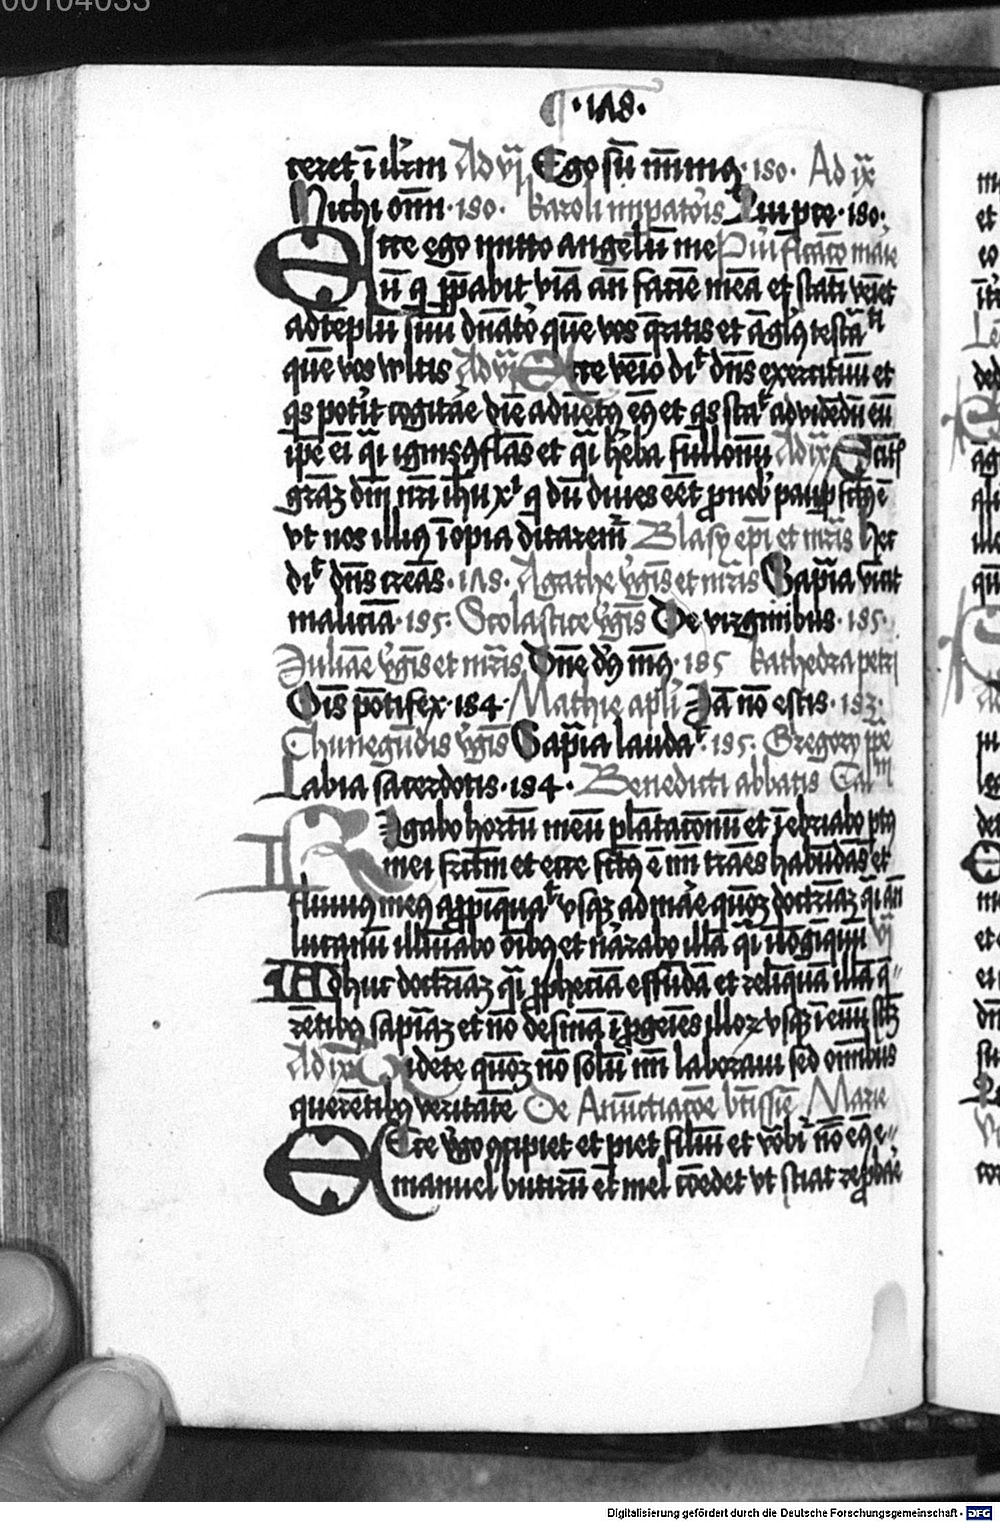 00104033
¶ ·178·
ceret ī ilr̄m Ad vj Ego sū mīmꝯ ·180· Ad ix
Michi om̄ ·180· karoli impatoris Qui pre ·180·
Ecce ego mitto angelū me Purificac̄o marie
ū q p̄pabit viā an̄ faciē meā et statī veīet
ad tēplū suū dn̄atoꝛ quē vos q̄ritis et āglꝰ testāti
quē vos vultis Ad vj Ecce veīo dicͭ dn̄s exercituū et
q̄s potit cogitāe diē aduētꝰ eiꝰ et q̄s stabͭ ad vidēdū eū
ip̄e ei q̄i ignis ꝯflās et q̄i h̄ba fullonū Ad ix Scitis
grāꝫ dn̄i nr̄i ihū xͥ q dū diues eēt ꝓ nob paup fctꝰ ē
vt nos illiꝰ īopia ditarem̄ Blasij ep̄i et mr̄is Hec
dicͭ dn̄s creās ·178· Agathe vgīs et mr̄is Sapīa vīcit
maliciā ·185· Scolastice vgīs De virginibus ·185·
Juliāe vgīs et mr̄is Dn̄e dꝰ mꝰ ·185 kathedra petri
Oīs pōtifex ·184· Mathie apl̄i Jā nō estis ·183·
Chunegūdis vgīs Sapīa laudaͭ ·185· Gregorij pp̄e
Labia sacerdotis ·184· Benedicti abbatis Cap̄lm
Rigabo hortū meū plātac̄onū et īebriabo ptꝰ
mei frctm̄ et ecce fctꝰ ē m̄ trāes habūdās et
fluuiꝰ meꝰ app̄iquaͭ vsqꝫ ad māe qm̄ doctrīaꝫ q̄i an̄
lucanū illuīabo oībꝰ et nārabo illā q̄i ī lōgīquū vj
Adhuc doctrīaꝫ q̄i ꝓpheciā effūdā et reliquā illā q̄
rētibꝰ sapīaꝫ et nō desinā ī ꝓgeīes illoꝝ vsqꝫ ī euū sctꝫ
Ad ix Videte qm̄ nō solū m̄ laboraui sed omībus
querētibꝰ veritatē De Anūctiac̄oe btīssīe Marie
Ecce v̄go ꝯcipiet et piet filiū et vōbiͬ nō eiꝰ e
manuel butirū et mel cōedet vt sciat rep̄baē
Digitalisierung gefördert durch die Deutsche Forschungsgemeinschaft - DFG